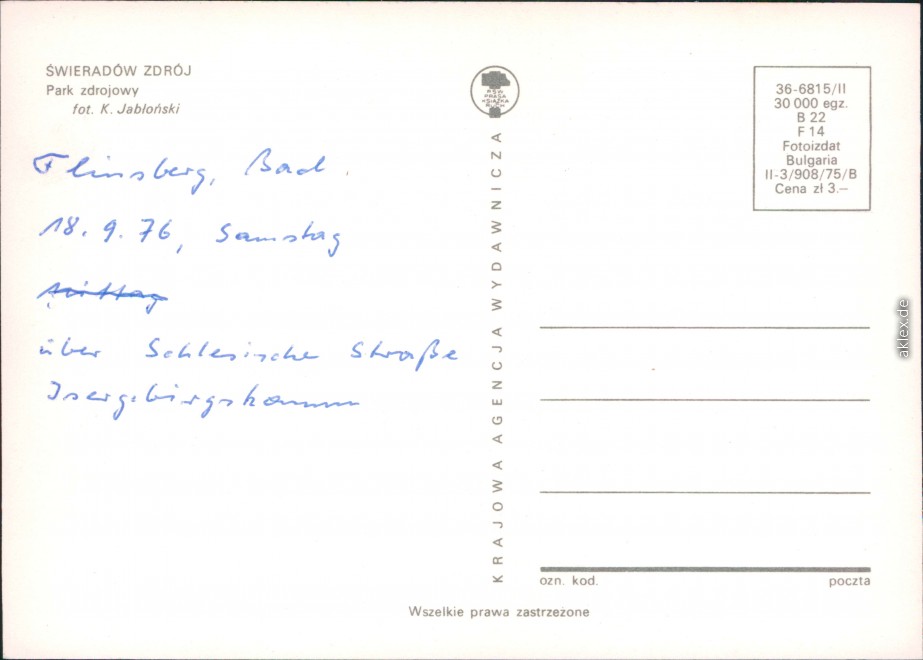 ŚWIERADÓW ZDRÓJ
Park zdrojowy
fot. K. Jabłoński
Flinsberg, Bad.
18. 9. 76, Samstag
über Schlesische Straße
Isergebirgskamm
KRAJOWA AGENCJA WYDAWNICZA
RSW
PRASA
KSIĄŻKA
RUCH
36-6815/II
30 000 egz.
B 22
F 14
Fotoizdat
Bulgaria
II-3/908/75/B
Cena zł 3.—
ozn. kod.
poczta
Wszelkie prawa zastrzeżone
aklex.de